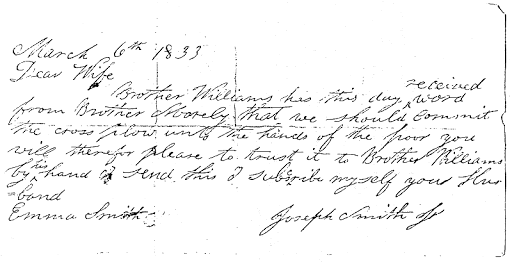 March 6th 1833
Dear Wife
Brother Williams has this day received word
from Brother Mosely that we should commit
the cross plow unto the hands of the poor you
will therefor please to trust it to Brother Williams
by his hand I send this I subscribe myself your Hus
band
Emma Smith Joseph Smith Jr